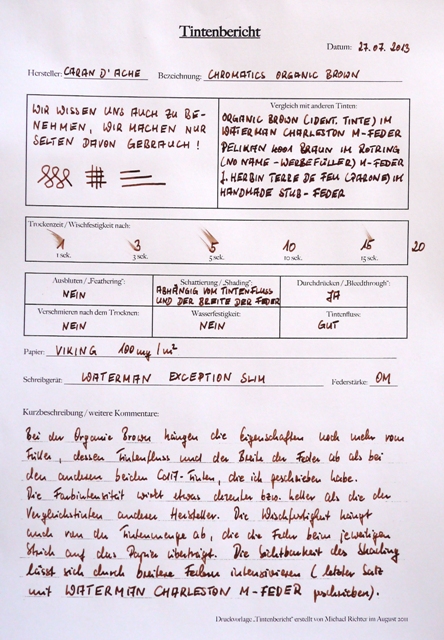 Tintenbericht
Datum: 27.07.2013
Hersteller: CARAN D'ACHE Bezeichnung: CHROMATICS ORGANIC BROWN
WIR WISSEN UNS AUCH ZU BE-
NEHMEN, WIR MACHEN NUR
SELTEN DAVON GEBRAUCH!
Vergleich mit anderen Tinten:
ORGANIC BROWN (IDENT. TINTE) IM
WATERMAN CHARLESTON M-FEDER
PELIKAN 4001 BRAUN IM ROTRING
(NO NAME - WERBEFÜLLER) M-FEDER
J. HERBIN TERRE DE FEU (PARONE) IM
HANDMADE STUB - FEDER
Trockenzeit / Wischfestigkeit nach:
1 3 5 10 15 20
1 sek. 3 sek. 5 sek. 10 sek. 15 sek.
Ausbluten / „Feathering": Schattierung / „Shading": Durchdrücken / „Bleedthrough":
NEIN ABHÄNGIG VOM TINTENFLUSS UND DER BREITE DER FEDER JA
Verschmieren nach dem Trocknen: Wasserfestigkeit: Tintenfluss:
NEIN NEIN GUT
Papier: VIKING 100 mg/m²
Schreibgerät: WATERMAN EXCEPTION SLIM Federstärke: OM
Kurzbeschreibung / weitere Kommentare:
Bei der Organic Brown hängen die Eigenschaften noch mehr vom
Füller, dessen Tintenfluss und der Breite der Feder ab als bei
den anderen beiden CdA-Tinten, die ich geschrieben habe.
Die Farbintensität wirkt etwas dezenter bzw. heller als die der
Vergleichstinten anderer Hersteller. Die Wischfestigkeit hängt
auch von der Tintenmenge ab, die die Feder beim jeweiligen
Strich auf das Papier überträgt. Die Sichtbarkeit des Shading
lässt sich durch breitere Federn intensivieren (letzter Satz
mit WATERMAN CHARLESTON M-FEDER geschrieben).
Druckvorlage „Tintenbericht" erstellt von Michael Richter im August 2011